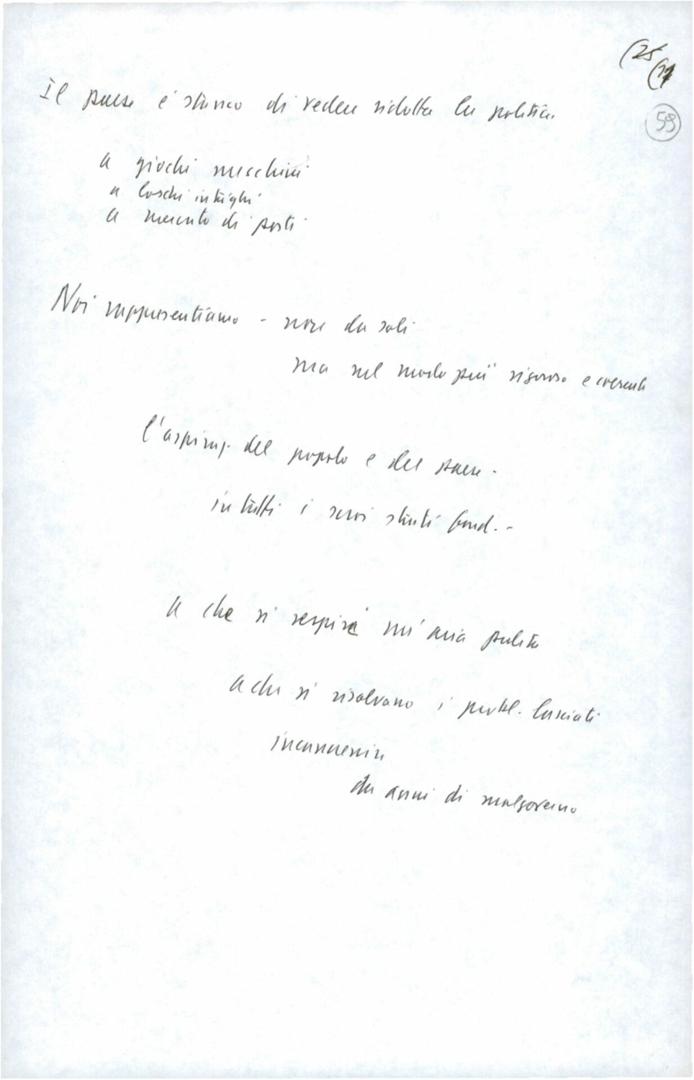 (25
(27
59
Il paese è stanco di vedere ridotta la politica
a giochi meschini
a loschi intrighi
a mercato di posti
Noi rappresentiamo - non da soli
ma nel modo più rigoroso e coerente
l'aspiraz. del popolo e del paese -
in tutti i suoi strati fond. -
a che si respiri un'aria pulita
a che si risolvano i probl. lasciati
incancrenire
da anni di malgoverno